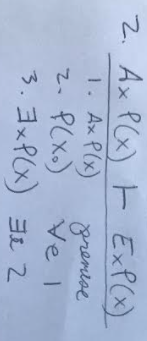 2. AxP(x) ⊢ ExP(x)
1. AxP(x) premise
2. P(x₀) ∀e 1
3. ∃xP(x) ∃i 2